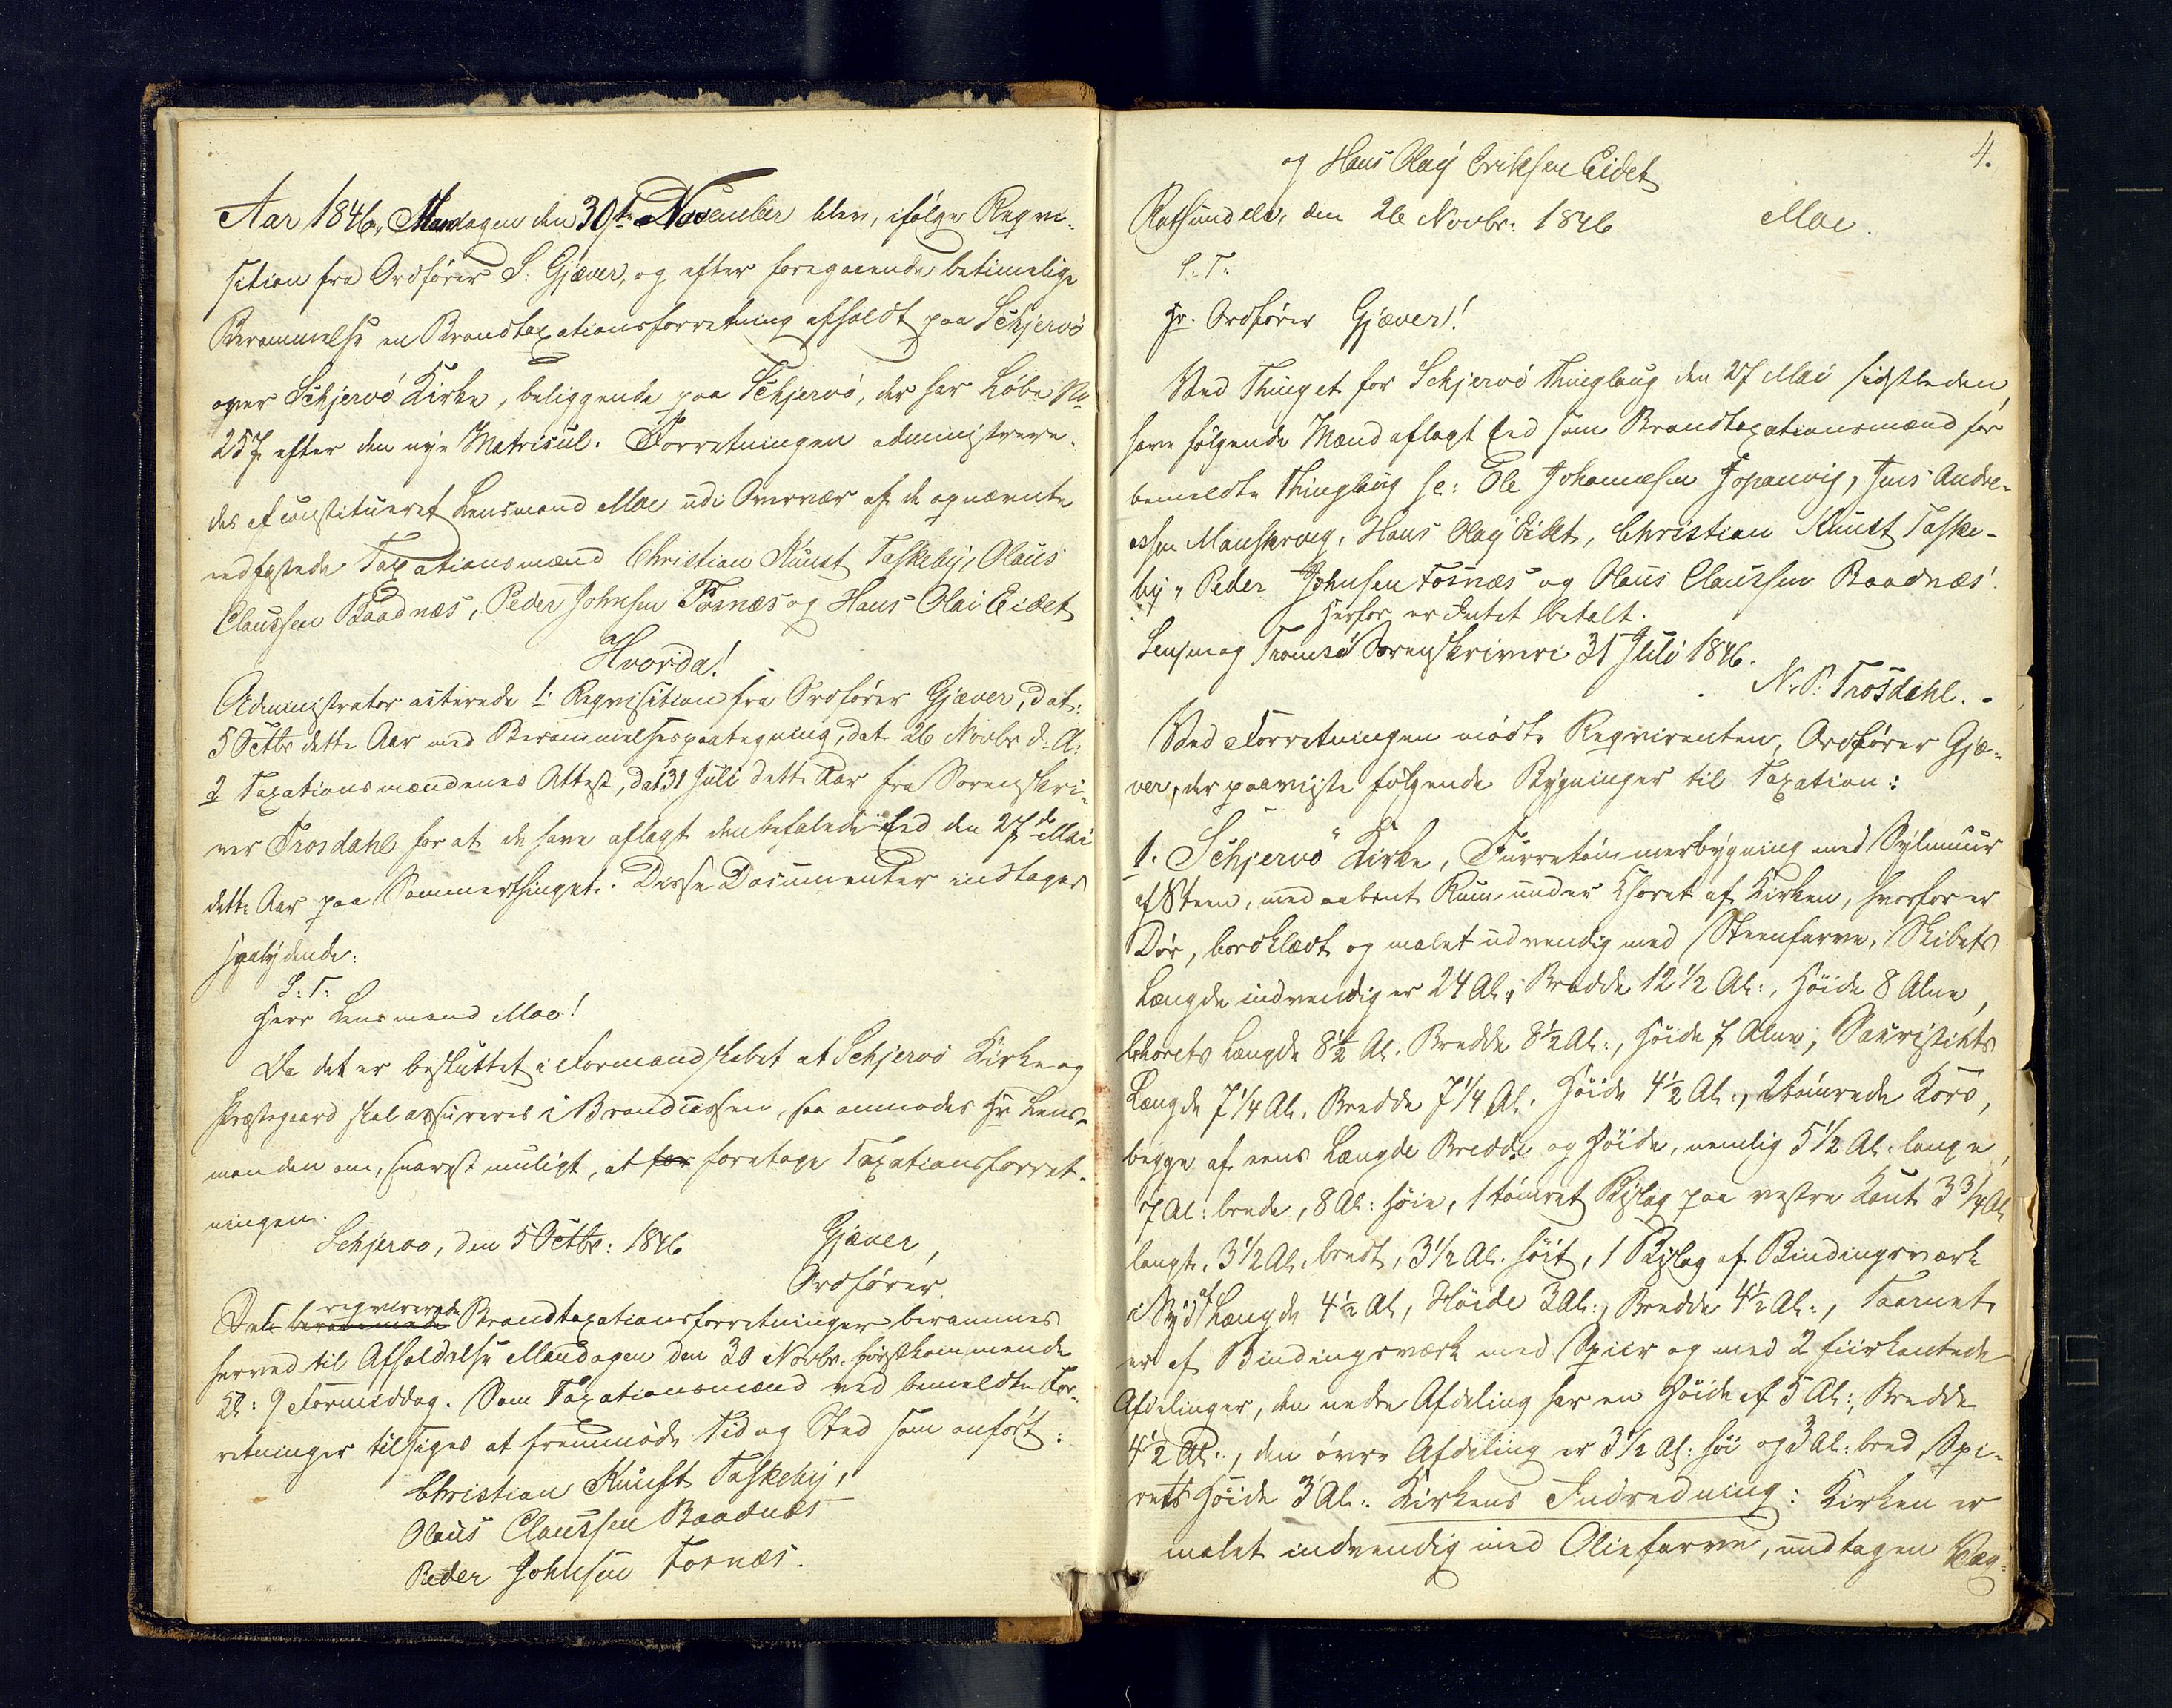 Aar 1846, Mandagen den 30te November blev, ifølge Reqvi-
sition fra Ordfører S: Gjæver, og efter foregaaende betimelige
Berammelse en Brandtaxationsforretning afholdt paa Schjervø
over Schjervø Kirke, beliggende paa Schjervø, der har Løbe No
257 efter den nye Matricul. Forretningen administrere-
des af constitueret Lensmand Moe udi Overvær af de opnævnte
edfæstede Taxationsmænd Christian Kunst Taskeby, Olaus
Claussen Baadnæs, Peder Johnsen Fosnæs og Hans Olai Eidet
Hvorda!
Administrator acterede 1: Reqvisition fra Ordfører Gjæver, dat:
5 Octbr dette Aar med Berammelsespaategning, dat. 26 Novbr d: A:
2 Taxationsmændenes Attest, dat 31 Juli dette Aar fra Sorenskri-
ver Trosdahl for at de have aflagt den befalede Eed den 27de Mai
dette Aar paa Sommerthinget. Disse Documenter indtages
saalydende:
S: T:
Herr Lensmand Moe!
Da det er besluttet i Formandskabet at Schjervø Kirke og
Præstegaard skal assureres i Brandcassen, saa anmodes Hr. Lens-
manden om, snarest muligt, at for foretage Taxationsforret-
ningen.
Schjervø, den 5 Octbr: 1846 Gjæver,
Ordfører.
reqvirerede
Den berammede Brandtaxationsforretninger berammes
herved til Afholdelse Mandagen den 30 Novbr. førstkommende
Kl: 9 Formiddag. Som Taxationsmænd ved bemeldte For-
retninger tilsiges at fremmøde Tid og Sted som anført:
Christian Kunst Taskeby,
Olaus Claussen Baadnæs
Peder Johnsen Fosnæs.
4.
og Hans Olay Eriksen Eidet
Rotsundelv, den 26 Novbr: 1846 Moe.
S: T:
Hr. Ordfører Gjæver!
Ved Thinget for Schjervø Thinglaug den 27 Mai sidstleden,
have følgende Mænd aflagt Eed som Brandtaxationsmænd for
bemeldte Thinglaug sc: Ole Johannesen Jopanvig, Jens Andre-
assen Maurskrveg, Hans Olay Eidet, Christian Kunst Taske-
by, Peder Johnsen Fosnæs og Olaus Claussen Baadnæs.
Herfor er Intet betalt.
Senjen og Tromsø Sorenskriveri 31 Juli 1846.
N. P. Trosdahl.
Ved Forretningen mødte Reqvirenten, Ordfører Gjæ-
ver, der paaviste følgende Bygninger til Taxation:
1. Schjervø Kirke, Furretømmerbygning med Sylmuur
af Steen, med aabent Rum under Choret af Kirken, hvorfor er
Dør, bordklædt og malet udvendig med Steenfarve, Skibets
Længde indvendig er 24 Al:, Bredde 12 1/2 Al:, Høide 8 Alne,
Chorets Længde 8 1/2 Al. Bredde 8 1/2 Al:, Høide 7 Alne, Sakristiets
Længde 7 1/4 Al. Bredde 7 1/4 Al. Høide 4 1/2 Al:, 2 tømrede Kors,
begge af eens Længde Bredde og Høide, nemlig 5 1/2 Al: lange,
7 Al: brede, 8 Al: høie, 1 tømret Bislag paa vestre Kant 3 3/4 Al.
langt, 3 1/2 Al. bredt, 3 1/2 Al. høit, 1 Bislag af Bindingsværk
i Syd af Længde 4 1/2 Al, Høide 3 Al:, Bredde 4 1/2 Al:, Taarnet
er af Bindingsværk med Spiir og med 2 fiirkantede
Afdelinger, den nedre Afdeling har en Høide af 5 Al:, Bredde
4 1/2 Al:, den øvre Afdeling er 3 1/2 Al: høi og 3 Al: bred, Spi-
rets Høide 3 Al:. Kirkens Indredning: Kirken er
malet indvendig med Oliefarve, undtagen Væg-